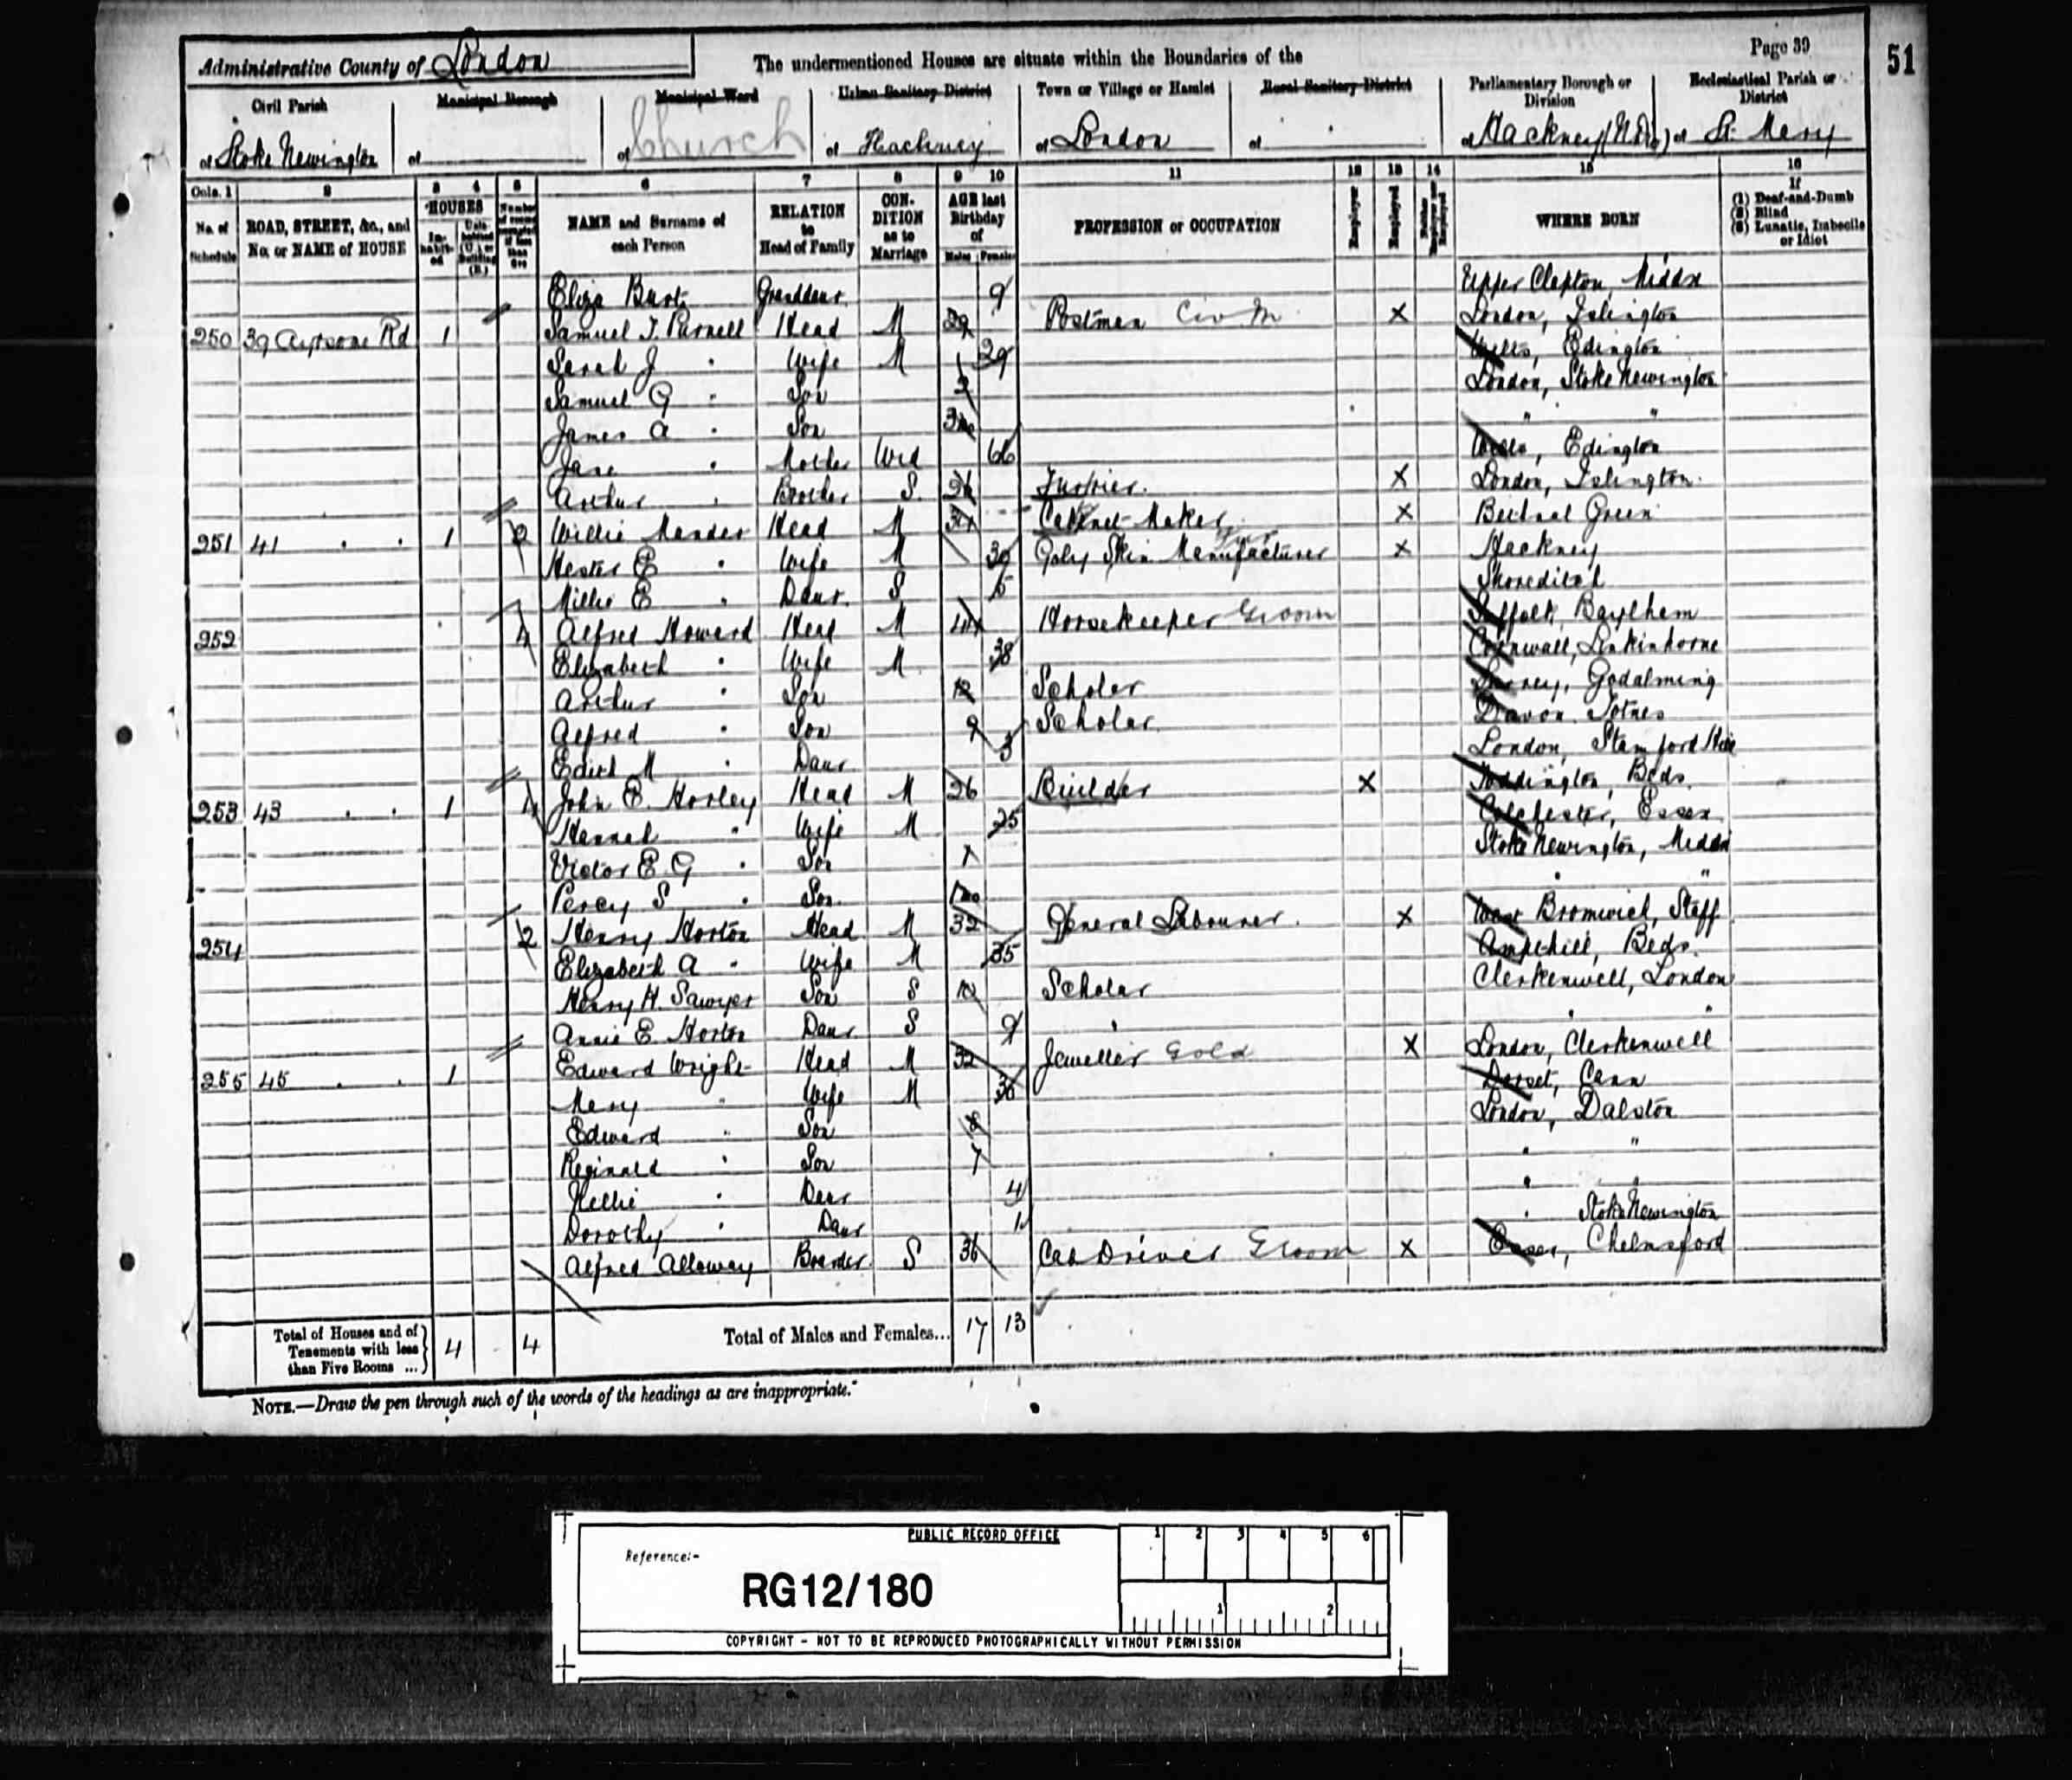 Page 39
51
Administrative County of London
The undermentioned Houses are situate within the Boundaries of the
Civil Parish
Municipal Borough
Municipal Ward
Urban Sanitary District
Town or Village or Hamlet
Rural Sanitary District
Parliamentary Borough or Division
Ecclesiastical Parish or District
of Stoke Newington
of
of Church
of Hackney
of London
of
of Hackney (N.Div) of St. Mary
Cols. 1 2 3 4 5 6 7 8 9 10 11 12 13 14 15 16
No. of Schedule
ROAD, STREET, &c., and No. or NAME of HOUSE
HOUSES
Inhabited
Uninhabited (U.) or Building (B.)
Number of rooms occupied if less than five
NAME and Surname of each Person
RELATION to Head of Family
CONDITION as to Marriage
AGE last Birthday of
Males Females
PROFESSION or OCCUPATION
Employer
Employed
Neither Employer nor Employed
WHERE BORN
If
(1) Deaf-and-Dumb
(2) Blind
(3) Lunatic, Imbecile or Idiot
Eliza Burt Granddaur 9 Upper Clapton, Middx
250 39 Rd 1 Samuel T. Purnell Head M 29 Postman Civ M X London, Islington
Sarah J " Wife M 29 Wilts, Edington
Samuel G " Son 2 London, Stoke Newington
James A " Son 3mo " "
Jane " Mother Wid 66 Wilts, Edington
Arthur " Brother S 26 Furrier X London, Islington
251 41 " " 1 2 Willie Mander Head M 31 Cabinet Maker X Bethnal Green
Hester E " Wife M 30 Skin Manufacturer Fur X Hackney
Millie E " Daur S 5 Shoreditch
252 4 Alfred Howard Head M Horsekeeper Groom Suffolk, Baylham
Elizabeth " Wife M 38 Cornwall, Linkinhorne
Arthur " Son 12 Scholar Surrey, Godalming
Alfred " Son 9 Scholar Devon, Totnes
Edith M " Daur 3 London, Stamford Hill
253 43 " " 1 4 John E. Horley Head M 26 Builder X Toddington, Beds
Hannah " Wife M 25 Colchester, Essex
Victor E. G " Son 1 Stoke Newington, Middx
Percy S " Son 1mo " "
254 2 Henry Horton Head M 32 General Labourer X West Bromwich, Staff
Elizabeth A " Wife M 35 Ampthill, Beds
Henry H. Sawyer Son S 12 Scholar Clerkenwell, London
Annie E Horton Daur S 9 " " "
255 45 " " 1 Edward Wright Head M 32 Jeweller Gold X London, Clerkenwell
Mary " Wife M 30 Dorset, Cann
Edward " Son 8 London, Dalston
Reginald " Son 7 " "
Nellie " Daur 4 " "
Dorothy " Daur 1 " Stoke Newington
Alfred Alloway Boarder S 36 Cab Driver Groom X Essex, Chelmsford
Total of Houses and of Tenements with less than Five Rooms ... 4 - 4
Total of Males and Females... 17 13
NOTE.—Draw the pen through such of the words of the headings as are inappropriate.
PUBLIC RECORD OFFICE
1 2 3 4 5 6
Reference:-
RG12/180
1 2
COPYRIGHT - NOT TO BE REPRODUCED PHOTOGRAPHICALLY WITHOUT PERMISSION